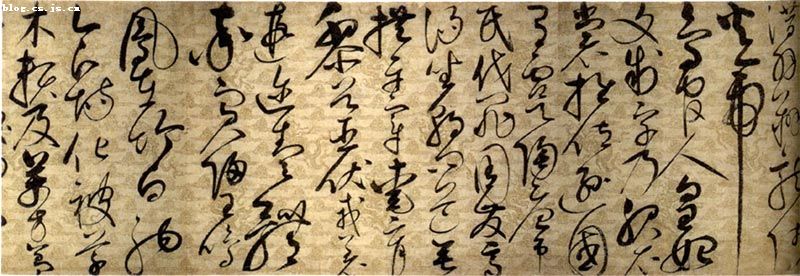 blog.cs.js.cn
潛羽翔龍師
火帝
鳥官人皇始
文制字乃服衣
裳推位遜國
有虞陶唐弔
民伐罪周發商
湯坐朝問道垂
拱平章愛育
黎首臣伏戎羌
遐邇壹體
率賓歸王鳴
鳳在竹白駒
食場化被草
木賴及萬方蓋